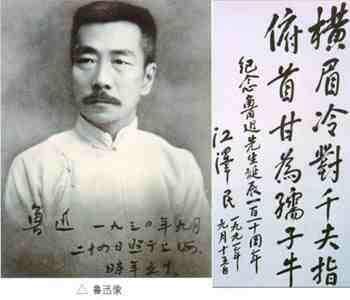 魯迅 一九三〇年九月
二十四日照于上海
時年五十
△ 鲁迅像
橫眉冷對千夫指
俯首甘為孺子牛
紀念魯迅先生誕辰一百一十周年
江澤民
一九九一年
九月十五日